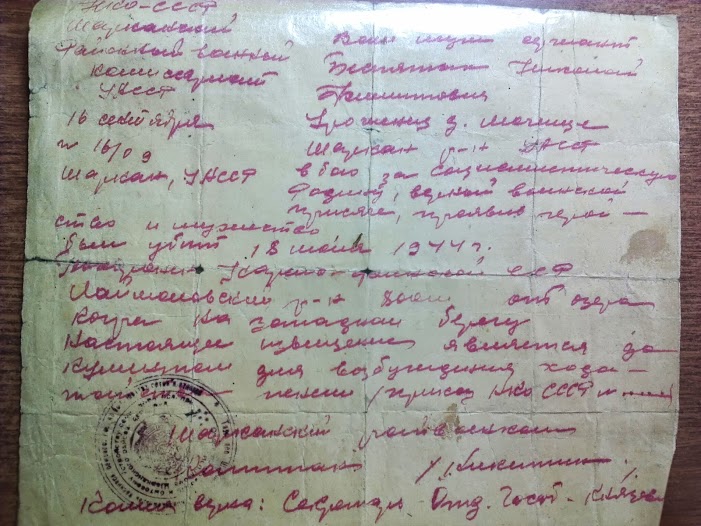 НКО-СССР
Шарканский
Районный военный
комиссариат
УАССР
16 сентября
№ 16/09
Шаркан, УАССР
Ваш муж сержант
Николай
Филиппович
Уроженец д. Мочище
Шаркан р-н УАССР
в бою за социалистическую
Родину, верный воинской
присяге, проявив герой-
ство и мужество
был убит 18 июля 1944 г.
Карело-финской ССР
р-н 800 м от озера
на западном берегу
Настоящее извещение является до
кументом для возбуждения хода
пенсии /приказ НКО СССР №
Шарканский райвоенком
Капитан /Никитин/
Копия верна: Секретарь